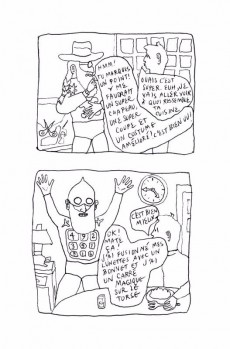 HMM!
TU MARQUES
UN POINT!
Y ME
FAUDRAIT
UN SUPER
CHAPEAU,
UNE SUPER
COUPE ET
UN COSTUME
AMÉLIORÉ!
OUAIS C'EST
SUPER. EUH JE
VAIS ALLER VOIR
À QUOI RESSEMBLE
TA
CUISINE.
C'EST BIEN OUI
OK!
MATE
ÇA!
J'AI FUSIONNÉ MES
LUNETTES AVEC UN
BONNET ET J'AI
UN CARRÉ
MAGIQUE
SUR LE
TORSE.
C'EST BIEN
MIEUX
4 9 2
3 5 7
8 1 6